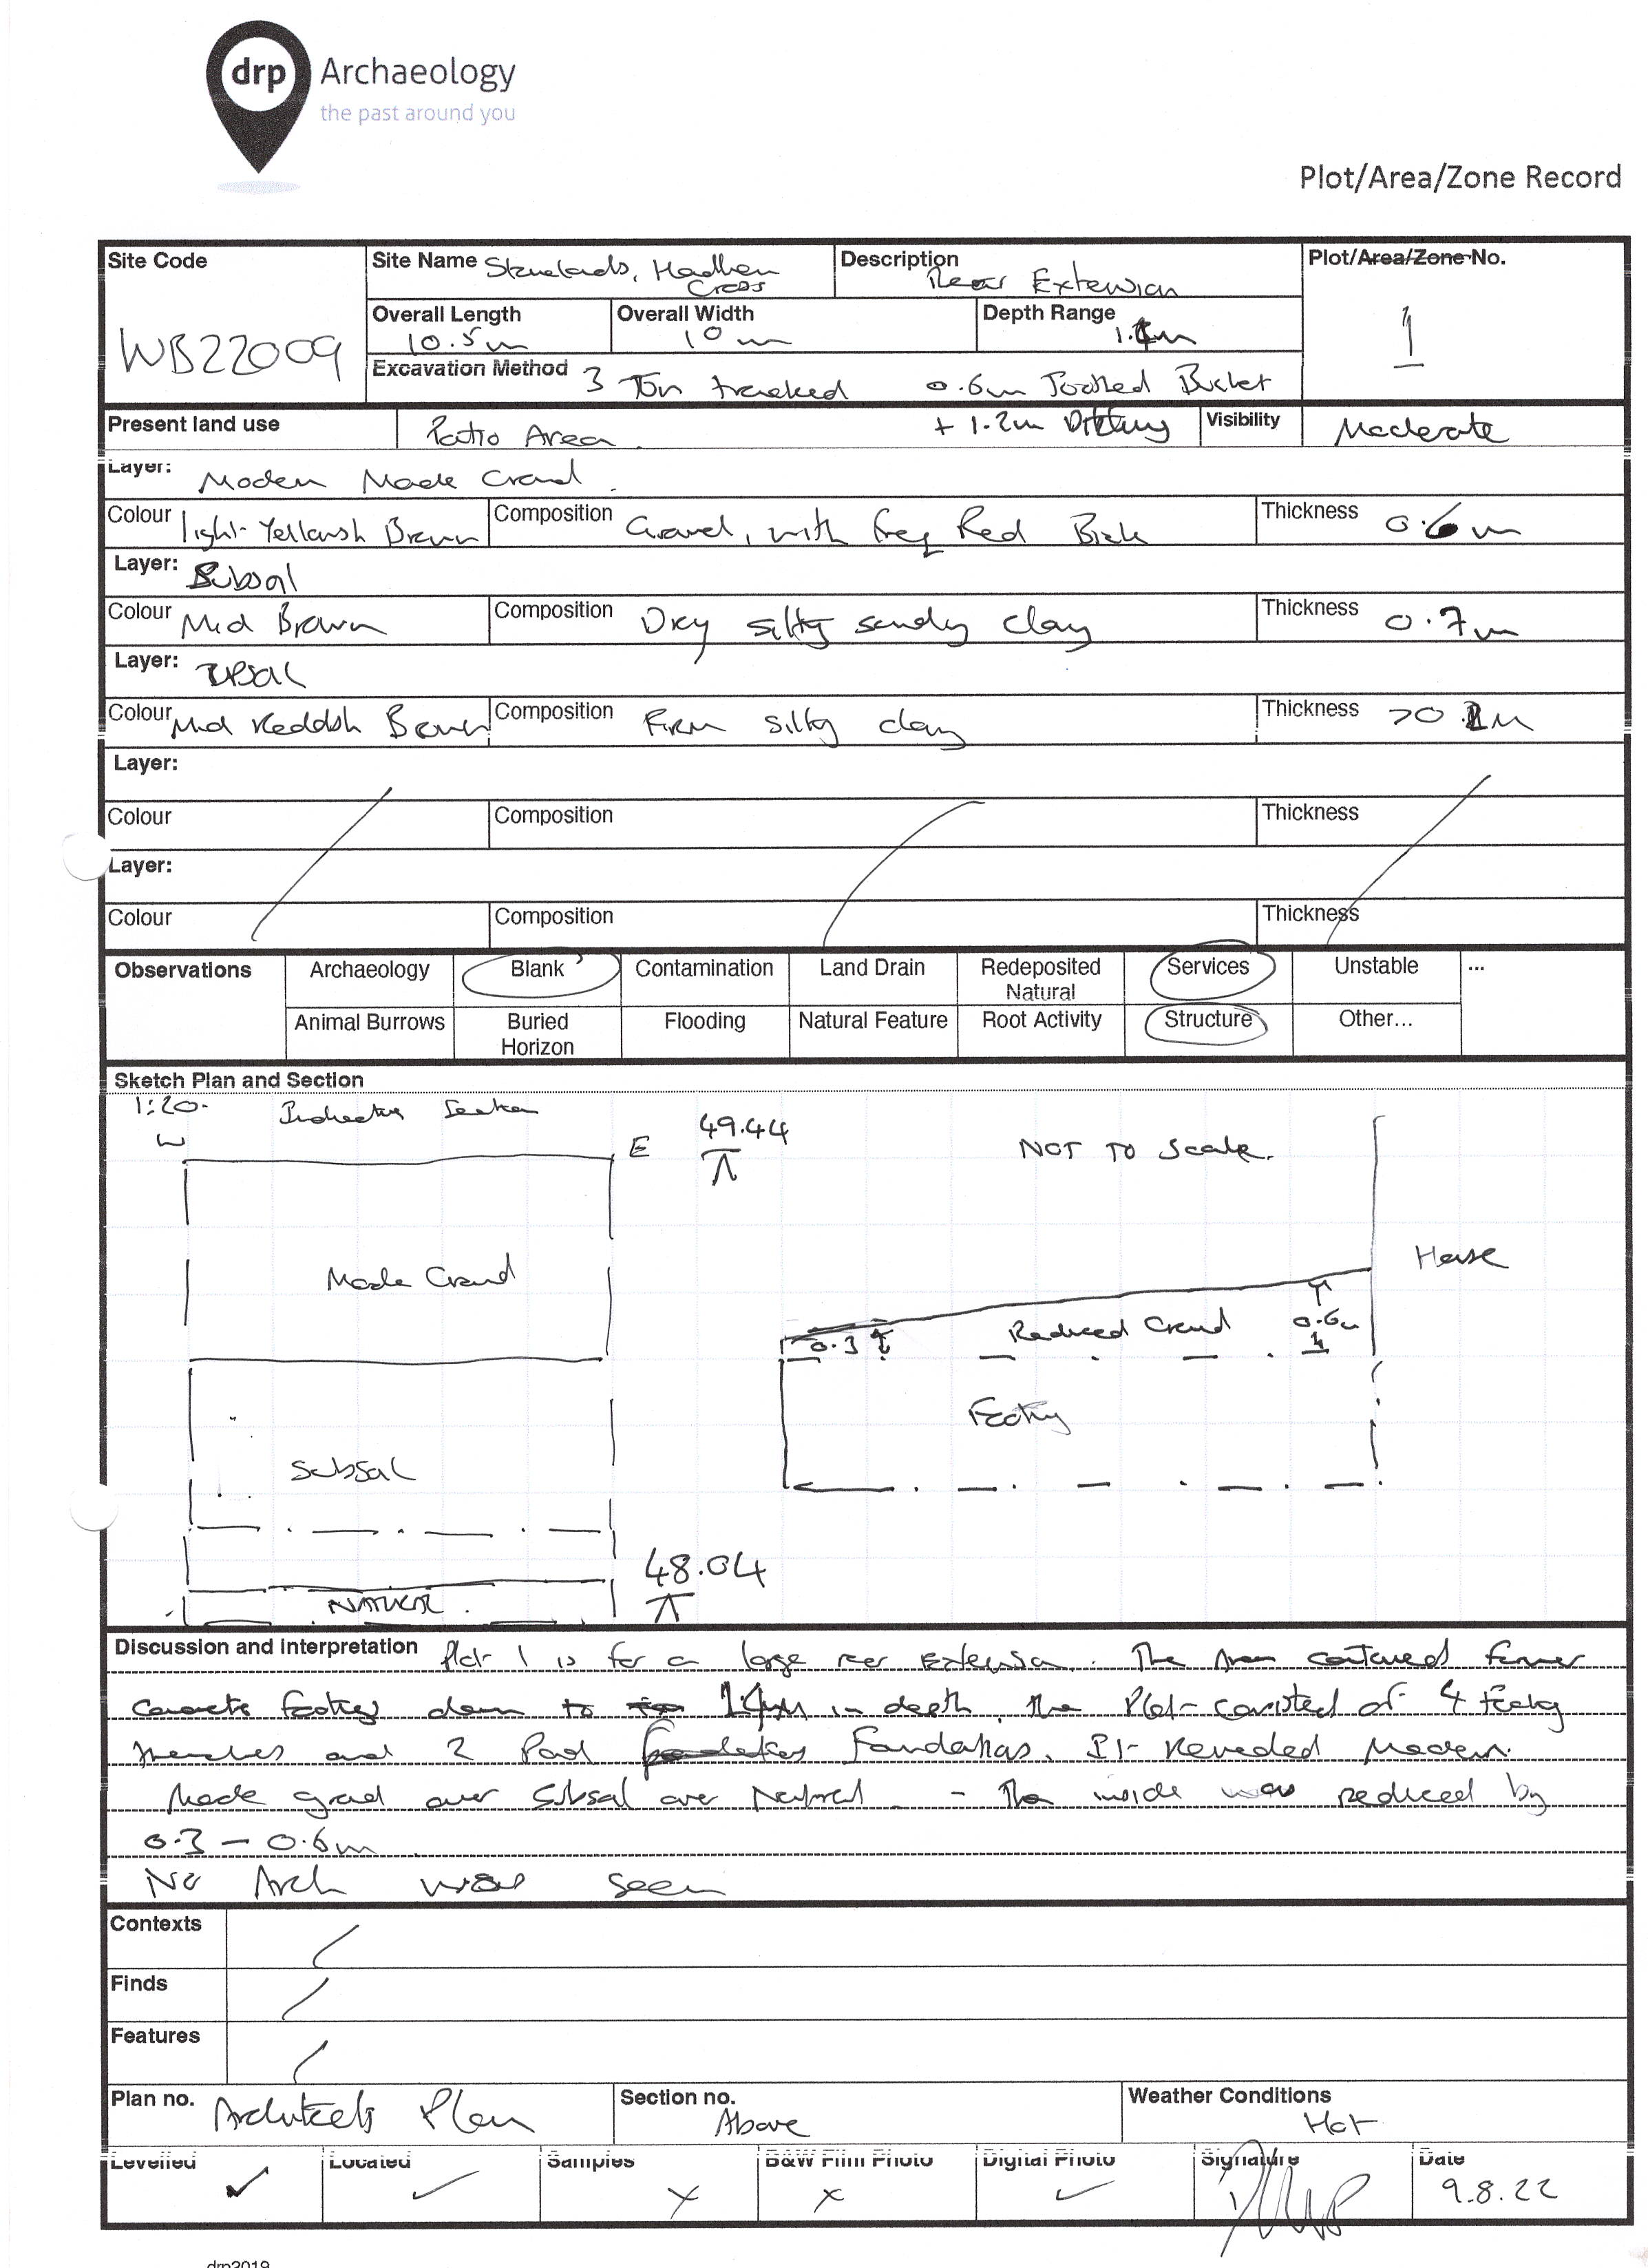 drp Archaeology
the past around you
Plot/Area/Zone Record
Site Code
WB22009
Site Name
Cross
Description Rear Extension
Plot/Area/Zone No.
1
Overall Length 10.5m
Overall Width 10m
Depth Range
Excavation Method 3 Ton tracked 0.6m Toothed Bucket
+ 1.2m Ditching
Present land use Patio Area
Visibility Moderate
Layer: Modern Made Ground
Colour light Yellowish Brown
Composition Gravel, with freq Red Brick
Thickness 0.6m
Layer: Subsoil
Colour Mid Brown
Composition Dry silty sandy clay
Thickness 0.7m
Layer:
Colour Mid Reddish Brown
Composition Firm silty clay
Thickness
Layer:
Colour
Composition
Thickness
Layer:
Colour
Composition
Thickness
Observations
Archaeology
Blank
Contamination
Land Drain
Redeposited Natural
Services
Unstable
...
Animal Burrows
Buried Horizon
Flooding
Natural Feature
Root Activity
Structure
Other...
Sketch Plan and Section
1:20. Indicative Section
W
E
49.44
NOT TO Scale.
Made Ground
House
Reduced Ground
0.3
0.6m
Footing
Subsoil
48.04
NATURAL
Discussion and Interpretation Plot 1 is for a large rear Extension. The Area contained former
Concrete footings down to 1.4m in depth. The Plot consisted of 4 footing
trenches and 2 Pad Foundations. It Revealed Modern
Made ground over Subsoil over Natural - The inside was reduced by
0.3 - 0.6m
No Arch was seen
Contexts
Finds
Features
Plan no. Architects Plan
Section no. Above
Weather Conditions Hot
Levelled
Located
Samples
B&W Film Photo
Digital Photo
Signature
Date
9.8.22
drp2019